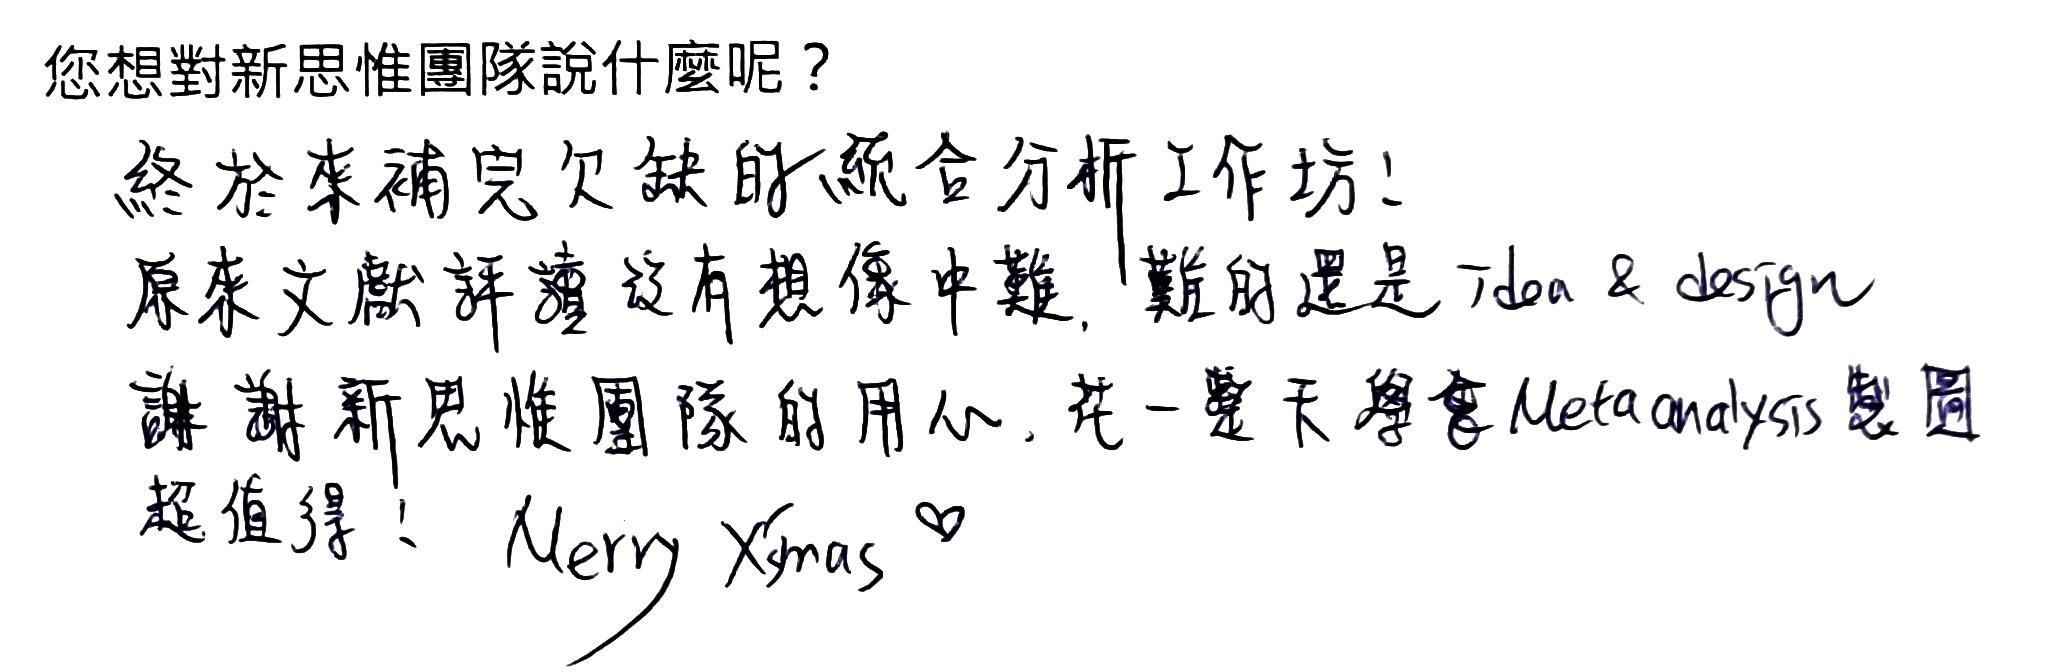 您想對新思惟團隊說什麼呢？
終於來補完欠缺的統合分析工作坊！
原來文獻評讀沒有想像中難，難的還是 idea & design
謝謝新思惟團隊的用心，花一整天學會 Meta analysis 製圖
超值得！ Merry X'smas ♡